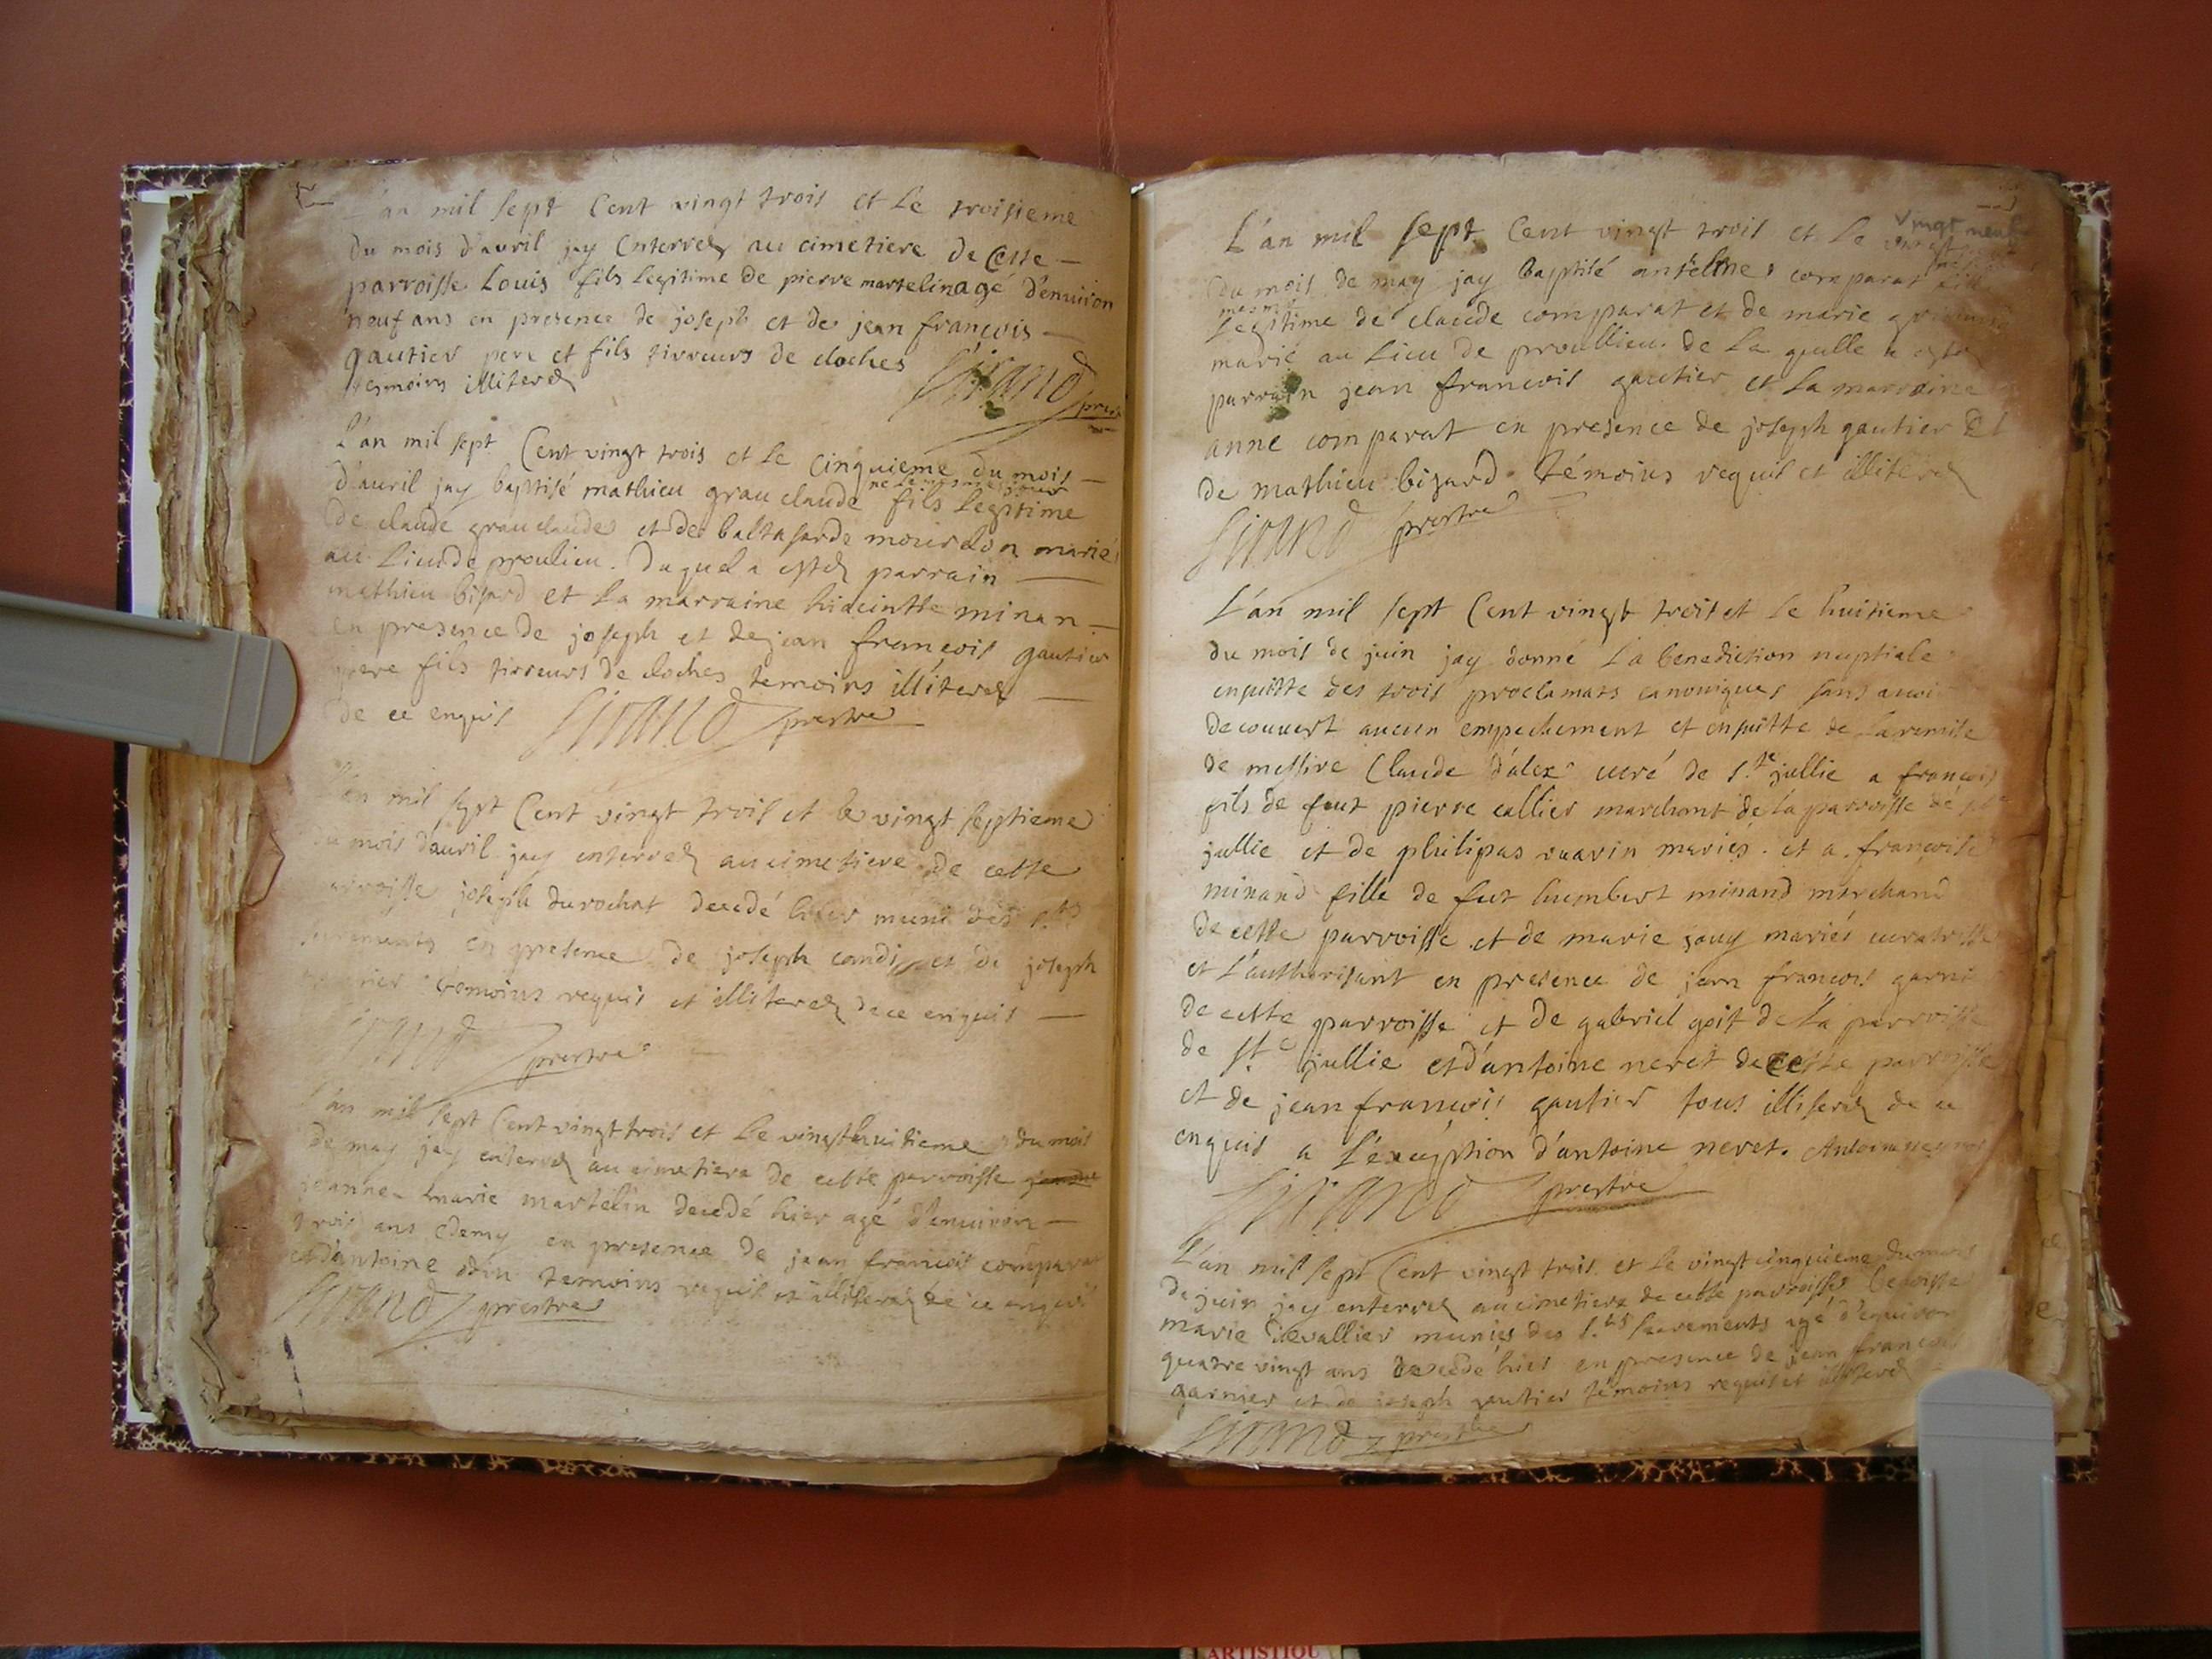 L'an mil sept Cent vingt trois et Le troisieme
du mois d'avril jay Enterrez au cimetiere de Cette
parroisse Louis fils Legitime de pierre martelin agé d'enuiron
neuf ans en presence de joseph et de jean françois
gautier pere et fils tirreurs de cloches
tesmoins illiterez
Sirand prestre
L'an mil sept Cent vingt trois et le Cinquieme du mois
né le mesme jour
d'auril jay baptisé mathieu grauclaude fils Legitime
de claude grauclaude et de baltasarde mourdon mariés
au Lieu de proulieu. Duquel a estez parrain
mathieu bisard et La marraine hiacintte minan
en presence de joseph et de jean françois gautier
pere fils tirreurs de cloches temoins illiterez
de ce enquis Sirand prestre
L'an mil sept Cent vingt trois et le vingt septieme
du mois d'auril jay enterrez au cimetiere de cette
parroisse joseph durochat decedé hier muni des s.ts
sacrements en presence de joseph candi et de joseph
temoins requis et illiterez de ce enquis
Sirand prestre
L'an mil sept Cent vingt trois et Le vingt huitieme du mois
de may jay enterrez au cimetiere de cette parroisse
jeanne marie martelin decedé hier agé d'enuiron
trois ans Edemy en presence de jean francois comparat
et d'antoine temoins requis et illiterez de ce enquis
Sirand prestre
L'an mil sept Cent vingt trois et Le vingt neuf
du mois de may jay baptisé anselme comparat fils
Legitime de claude comparat et de marie
marié au Lieu de proullieu. de La quelle a estez
parrain jean francois gautier et La marraine
anne comparat en presence de joseph gautier Et
de mathieu bizard témoins requis et illiterez
Sirand prestre
L'an mil sept Cent vingt trois et le huitieme
du mois de juin jay donné La benediction nuptiale
ensuitte des trois proclamats canoniques sans avoir
decouuert aucun empechement et ensuitte de La remise
de messire Claude d'alex curé de s.te jullie a francois
fils de feut pierre callier marchant de la parroisse de s.te
jullie et de philipas vuarin mariés. et a francoise
minand fille de feut humbert minand marchand
de cette parroisse et de marie jany mariés curatrisse
et L'authorisant en presence de jean francois garni
de cette parroisse et de gabriel goit de La parroisse
de s.te jullie et d'antoine neret de cette parroisse
et de jean francois gautier tous illiterez de ce
enquis a L'exception d'antoine neret. Antoine neret
Sirand prestre
L'an mil sept Cent vingt trois et Le vingt cinquieme du mois
de juin jay enterrez au cimetiere de cette parroisse
marie Chevallier munies des s.ts sacrements agé d'enuiron
quatre vingt ans decedé hier en presence de jean francois
garnier et de joseph gautier témoins requis et illiterez
Sirand prestre